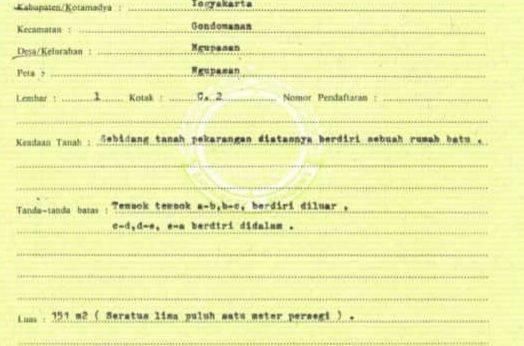 Kabupaten/Kotamadya : Yogyakarta
Kecamatan : Gondomanan
Desa/Kelurahan : Ngupasan
Peta : Ngupasan
Lembar : 1 Kotak : C. 2 Nomor Pendaftaran :
Keadaan Tanah : Sebidang tanah pekarangan diatasnya berdiri sebuah rumah batu .
Tanda-tanda batas : Tembok tembok a-b,b-c, berdiri diluar ,
c-d,d-e, e-a berdiri didalam .
Luas : 151 m2 ( Seratus lima puluh satu meter persegi ) .